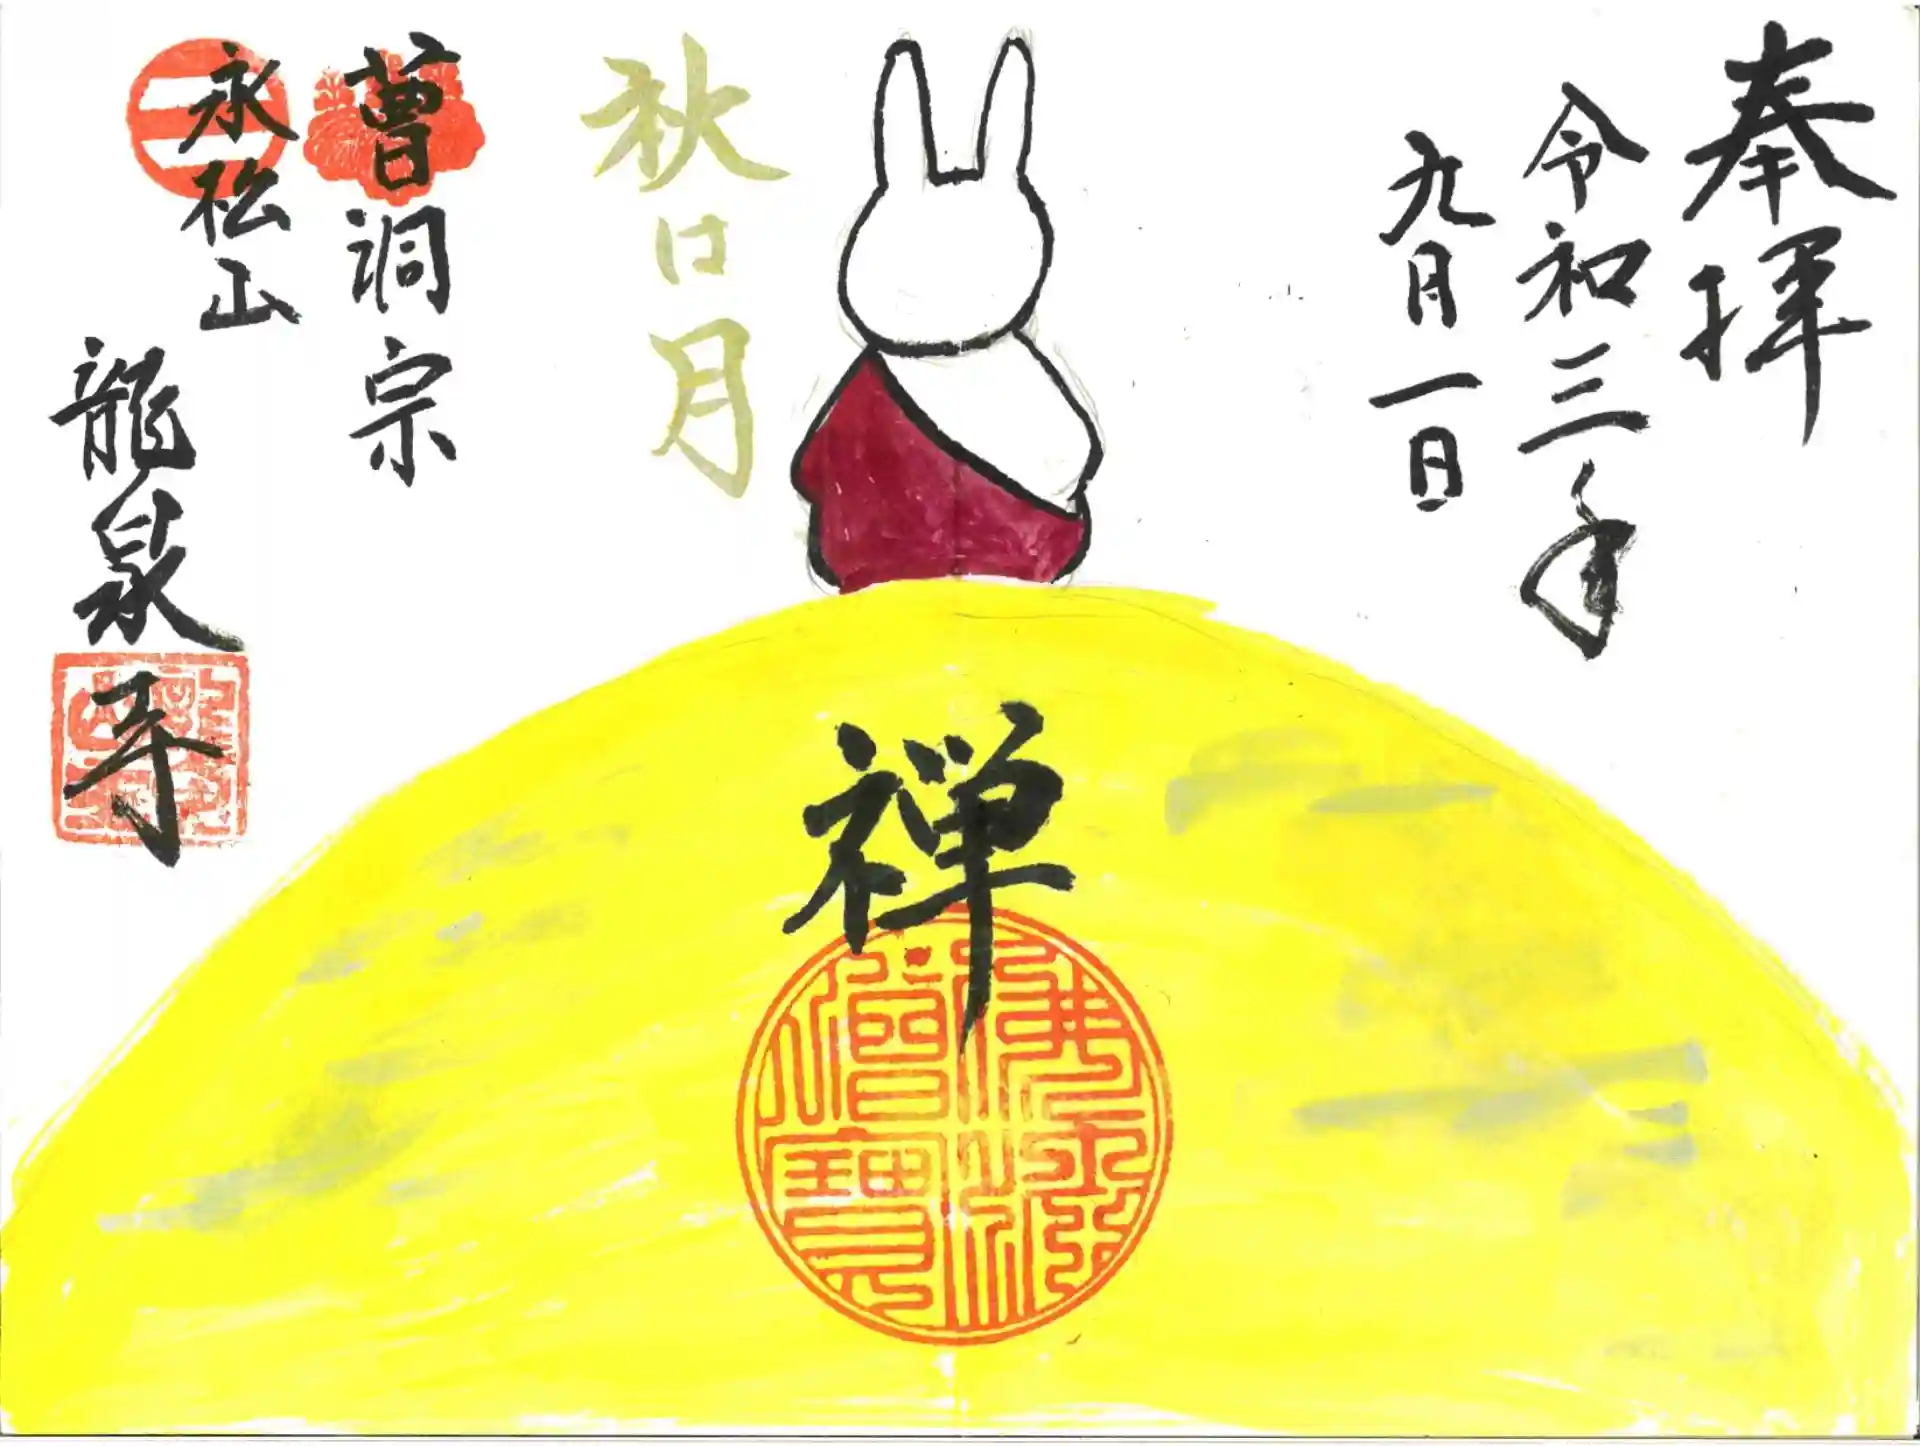 奉拝
令和三年
九月一日
秋は月
禅
佛法僧寳
曹洞宗
永松山
龍泉寺